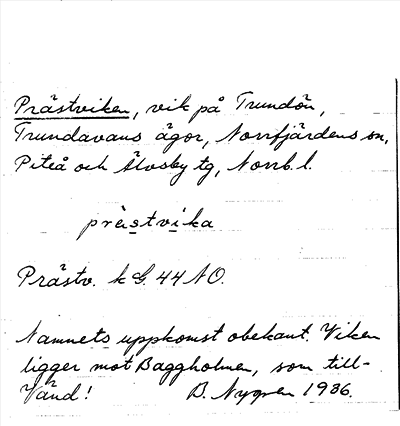 Prästviken, vik på Trundön,
Trundavans ägor, Norrfjärdens sn,
Piteå och Älvsby tg, Norrb. l.
prästvika
Prästv. k G. 44 NO.
Namnets uppkomst obekant. Viken
ligger mot Baggholmen, som till-
Vänd! B. Nygren 1936.